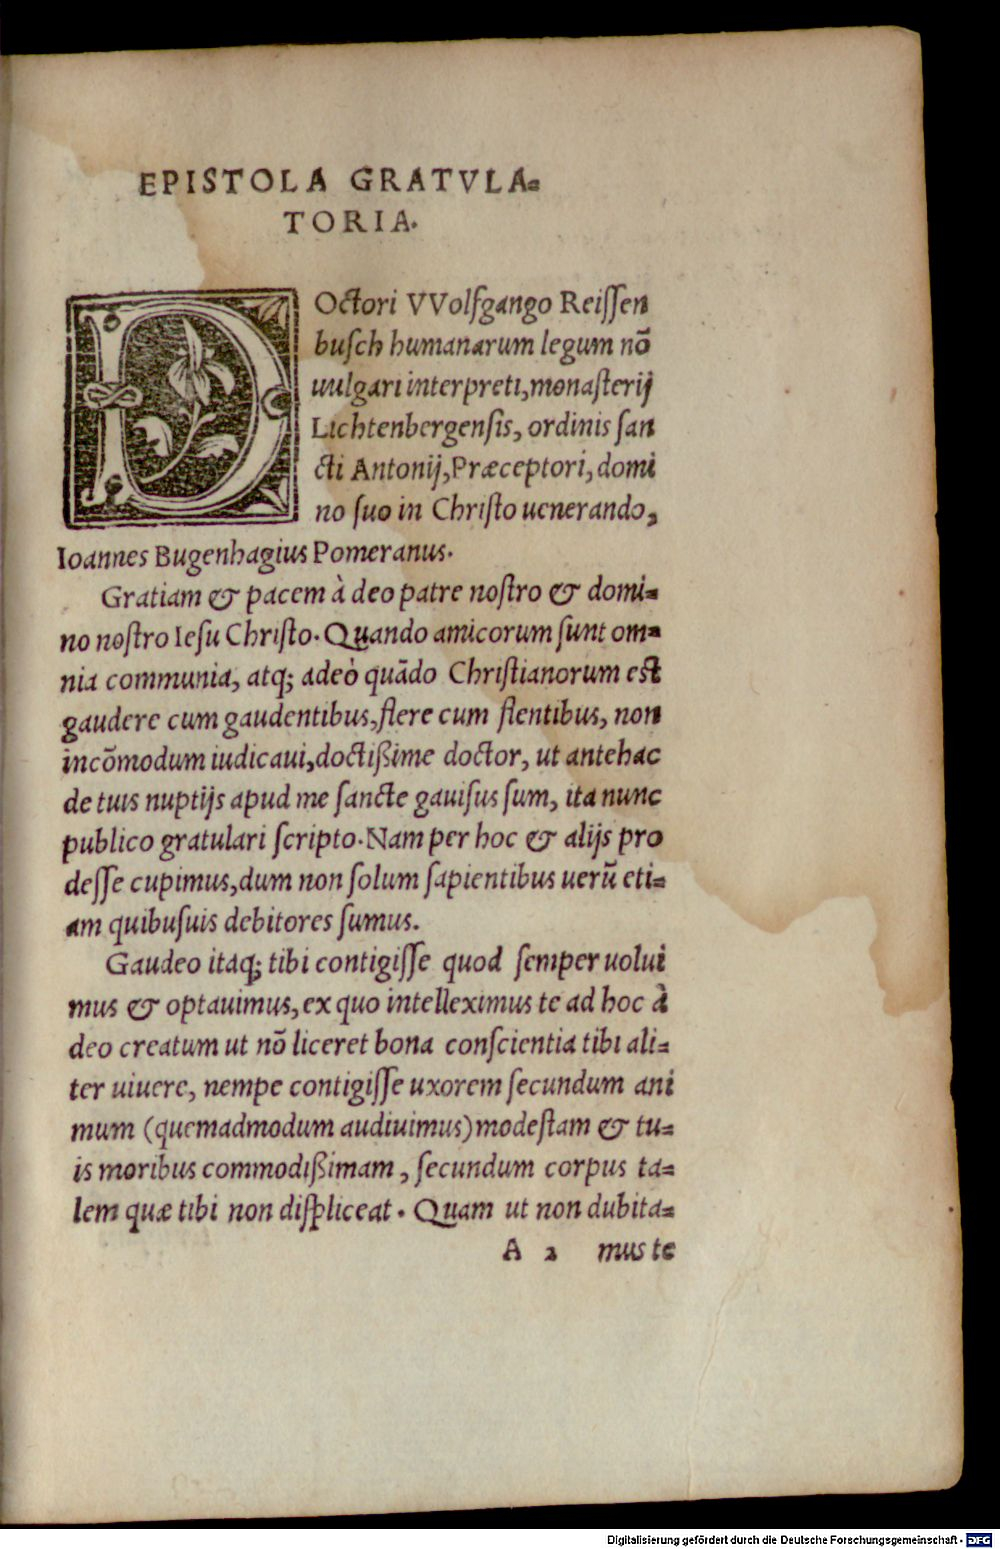 EPISTOLA GRATVLA-
TORIA.
DOctori VVolfgango Reiſſen
buſch humanarum legum nō
uulgari interpreti, monaſterij
Lichtenbergenſis, ordinis ſan
cti Antonij, Præceptori, domi
no ſuo in Chriſto uenerando,
Ioannes Bugenhagius Pomeranus.
Gratiam & pacem à deo patre noſtro & domi-
no noſtro Ieſu Chriſto. Quando amicorum ſunt om-
nia communia, atq; adeò quādo Chriſtianorum eſt
gaudere cum gaudentibus, flere cum flentibus, non
incōmodum iudicaui, doctißime doctor, ut antehac
de tuis nuptijs apud me ſancte gauiſus ſum, ita nunc
publico gratulari ſcripto. Nam per hoc & alijs pro
deſſe cupimus, dum non ſolum ſapientibus uerū eti-
am quibuſuis debitores ſumus.
Gaudeo itaq; tibi contigiſſe quod ſemper uolui
mus & optauimus, ex quo intelleximus te ad hoc à
deo creatum ut nō liceret bona conſcientia tibi ali-
ter uiuere, nempe contigiſſe uxorem ſecundum ani
mum (quemadmodum audiuimus) modeſtam & tu-
is moribus commodißimam, ſecundum corpus ta-
lem quæ tibi non diſpliceat. Quam ut non dubita-
A 2 mus te
Digitalisierung gefördert durch die Deutsche Forschungsgemeinschaft - DFG